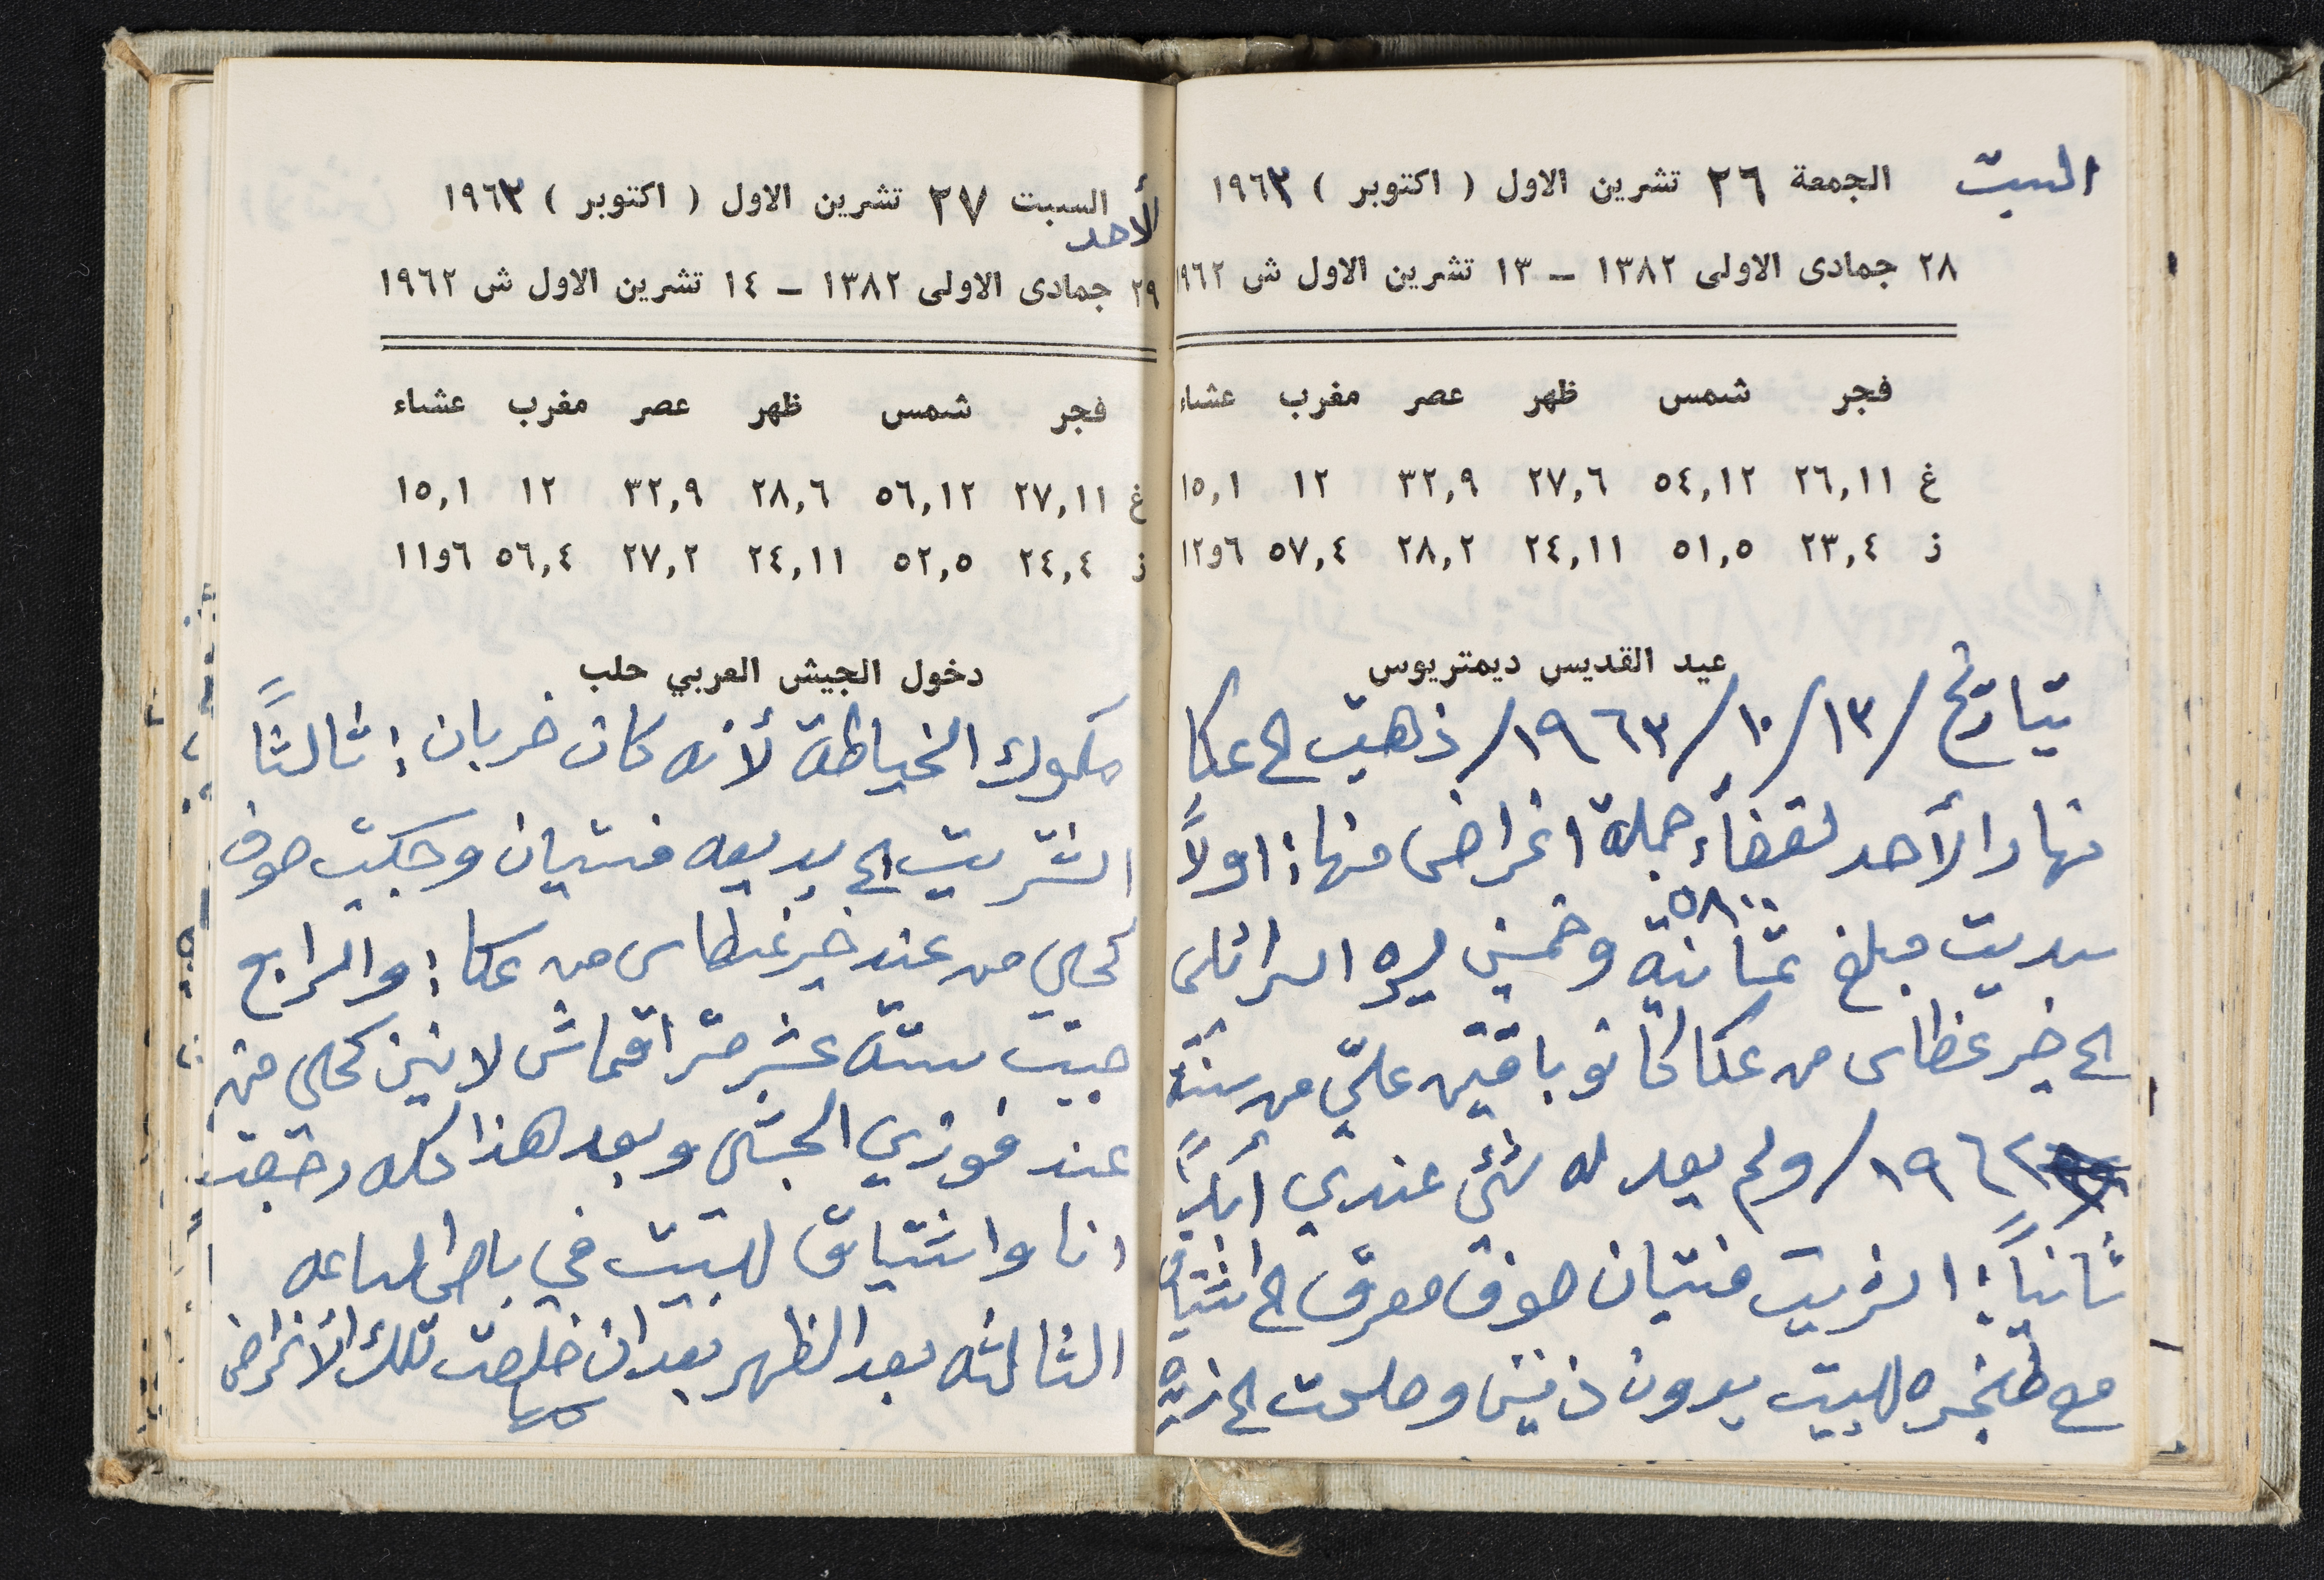 السبت الجمعة ٢٦ تشرين الاول ( اكتوبر ) ١٩٦٣
٢٨ جمادى الاولى ١٣٨٢ – ١٣ تشرين الاول ش ١٩٦٢
فجر شمس ظهر عصر مغرب عشاء
غ ٢٦,١١ ٥٤,١٢ ٢٧,٦ ٣٢,٩ ١٢ ١٥,١
ز ٢٣,٤ ٥١,٥ ٢٤,١١ ٢٨,٢ ٥٧,٤ ٦و١٢
عيد القديس ديمتريوس
بتاريخ /١٣/١٠/١٩٦٣/ ذهبت الى عكا
نهار الأحد لقضاء جملة اغراض منها: اولاً
سديت مبلغ ثمانية وخمسين ليره اسرائلي
٥٨٠٠
الى خير غطاس من عكا كانو باقين عليّ من سنة
١٩٦٢/ ولم يعد له شئ عندي أبداً
ثانياً: اشتريت فستان صوف معرق الى اشتياق
مع طنجره للبيت بدون ذنين وصلحت الى نزيه
السبت ٢٧ تشرين الاول ( اكتوبر ) ١٩٦٣
الأحد
٢٩ جمادى الاولى ١٣٨٢ – ١٤ تشرين الاول ش ١٩٦٢
فجر شمس ظهر عصر مغرب عشاء
غ ٢٧,١١ ٥٦,١٢ ٢٨,٦ ٣٢,٩ ١٢ ١٥,١
ز ٢٤,٤ ٥٢,٥ ٢٤,١١ ٢٧,٢ ٥٦,٤ ٦و١١
دخول الجيش العربي حلب
مكوك الخياطة لأنه كان خربان: ثالثاً
اشتريت الى بديعه فستيان وجكيت صوف
كحلي من عند خير غطاس من عكا: والرابع
جبت ستة عشر متر اقماش لانين كحلي من
عند فوزي الحبشي وبعد هذا كله رجعت
انا واشتياق للبيت في باص الساعه
الثالثه بعد الظهر بعد ان خلصت تلك الأغراض